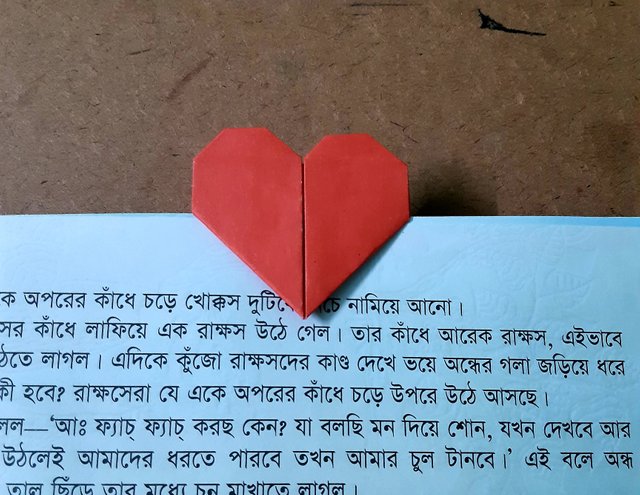 কে অপরের কাঁধে চড়ে খোক্কস নামিয়ে আনো।
কাঁধে লাফিয়ে এক রাক্ষস উঠে গেল। তার কাঁধে আরেক রাক্ষস, এইভাবে
লাগল। এদিকে কুঁজো রাক্ষসদের কাণ্ড দেখে ভয়ে অন্ধের গলা জড়িয়ে ধরে
কী হবে? রাক্ষসেরা যে একে অপরের কাঁধে চড়ে উপরে উঠে আসছে।
‘আঃ ফ্যাচ্ ফ্যাচ্ করছ কেন? যা বলছি মন দিয়ে শোন, যখন দেখবে আর
উঠলেই আমাদের ধরতে পারবে তখন আমার চুল টানবে।’ এই বলে অন্ধ
তাল ছিঁড়ে তার মধ্যে চুন মাখাতে লাগল।